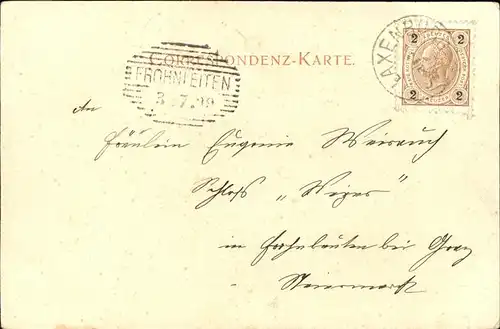 CORRESPONDENZ-KARTE.
LAXENBURG
2 2
2 2
FROHNLEITEN
3.7.99
An
Fräulein Eugenie Weirauch
Schloß „Weyer“
in Frohnleiten bei Graz
Steiermark